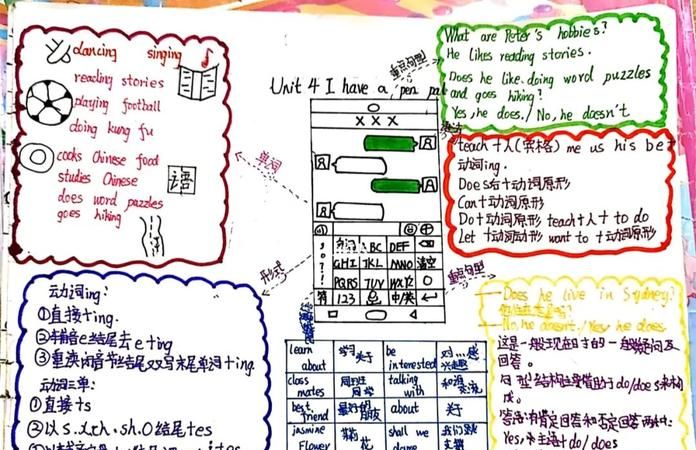 dancing singing
reading stories
playing football
doing kung fu
cooks Chinese food
studies Chinese
语
does word puzzles
goes hiking
Unit 4 I have a pen pal
单词
重点句型
语法
形式
重点句型
XXX
ABC DEF
GHI JKL MNO 清空
PQRS TUV WXYZ
符 123 中/英
What are Peter's hobbies?
He likes reading stories.
Does he like doing word puzzles
and goes hiking?
Yes, he does. / No, he doesn't
teach+人(宾格) me us his be
动词ing.
Does后+动词原形
Can+动词原形
Do+动词原形 teach+人+to do
Let +动词原形 want to +动词原形
动词ing:
①直接+ing.
②不发音e结尾去e+ing
③重读闭音节结尾双写末尾单词+ing
动词三单:
①直接+s
②以s.x.ch.sh.o结尾+es
learn about 学习关于 be interested 对…感兴趣
class mates 同班同学 talking with 和谁交流
best friend 最好的朋友 about 关于
jasmine Flower 茉莉花 shall we
Does he live in Sydney?
No, he doesn't. / Yes, he does.
这是一般现在时的一般疑问句及
回答。
句型结构主要借助于do/does来构
成。
答语有肯定回答和否定回答两种:
Yes, 主语+do/does